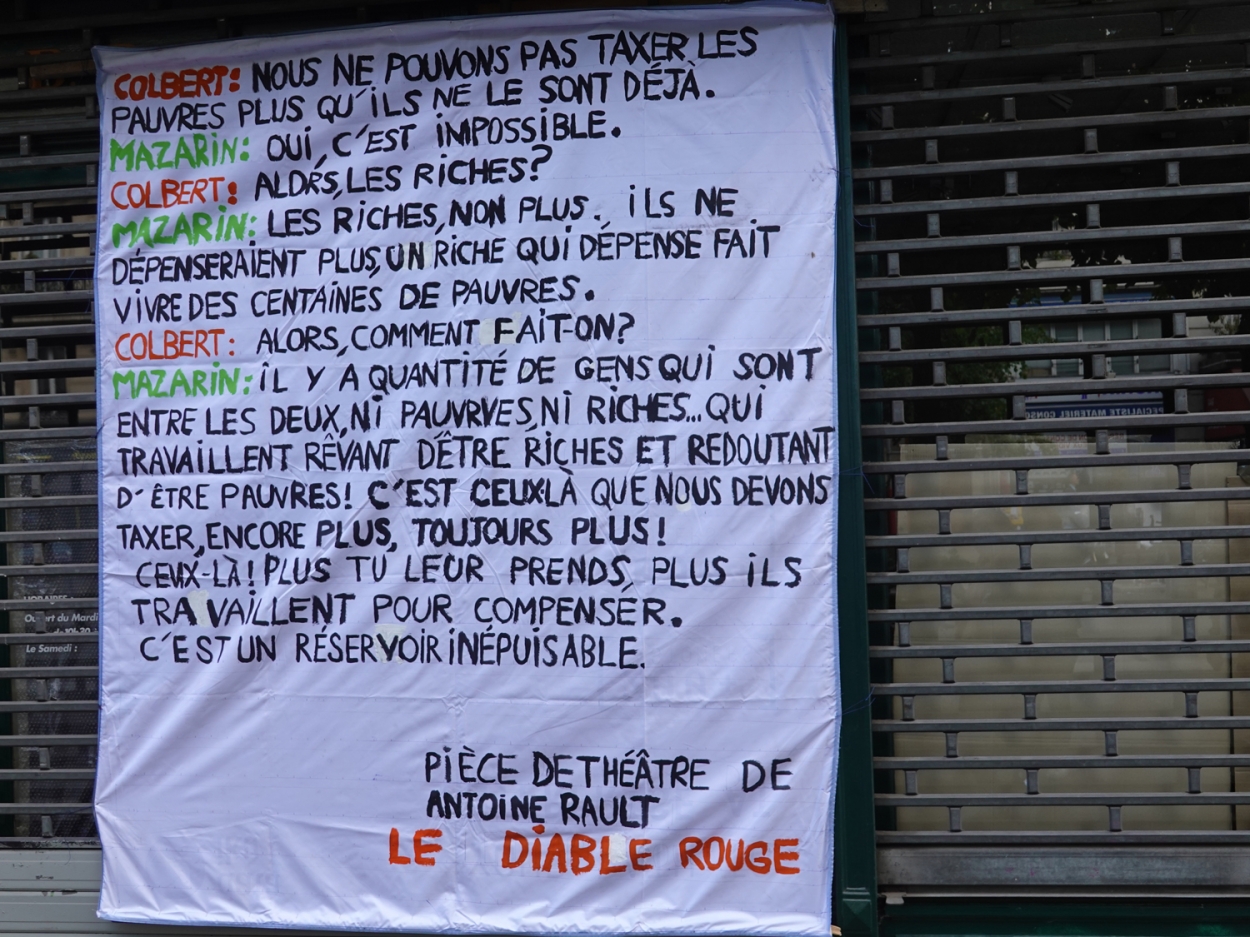 COLBERT: NOUS NE POUVONS PAS TAXER LES
PAUVRES PLUS QU'ILS NE LE SONT DÉJÀ.
MAZARIN: OUI, C'EST IMPOSSIBLE.
COLBERT: ALORS, LES RICHES?
MAZARIN: LES RICHES, NON PLUS. ILS NE
DÉPENSERAIENT PLUS, UN RICHE QUI DÉPENSE FAIT
VIVRE DES CENTAINES DE PAUVRES.
COLBERT: ALORS, COMMENT FAIT-ON?
MAZARIN: IL Y A QUANTITÉ DE GENS QUI SONT
ENTRE LES DEUX, NI PAUVRVES, NI RICHES... QUI
TRAVAILLENT RÊVANT D'ÊTRE RICHES ET REDOUTANT
D'ÊTRE PAUVRES! C'EST CEUX-LÀ QUE NOUS DEVONS
TAXER, ENCORE PLUS, TOUJOURS PLUS!
CEUX-LÀ! PLUS TU LEUR PRENDS, PLUS ILS
TRAVAILLENT POUR COMPENSER.
C'EST UN RÉSERVOIR INÉPUISABLE.
PIÈCE DE THÉÂTRE DE
ANTOINE RAULT
LE DIABLE ROUGE
HORAIRES:
Ouvert du Mardi
Le Samedi :